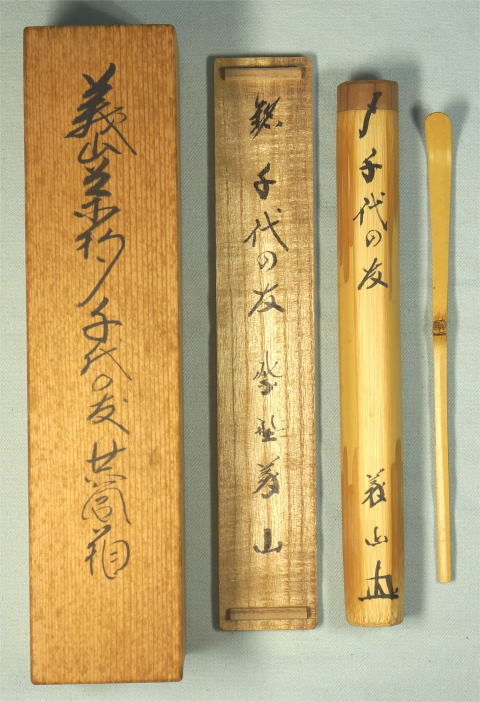 義山茶杓ノ千代の友共筒箱
銘 千代の友 紫野義山
千代の友 義山